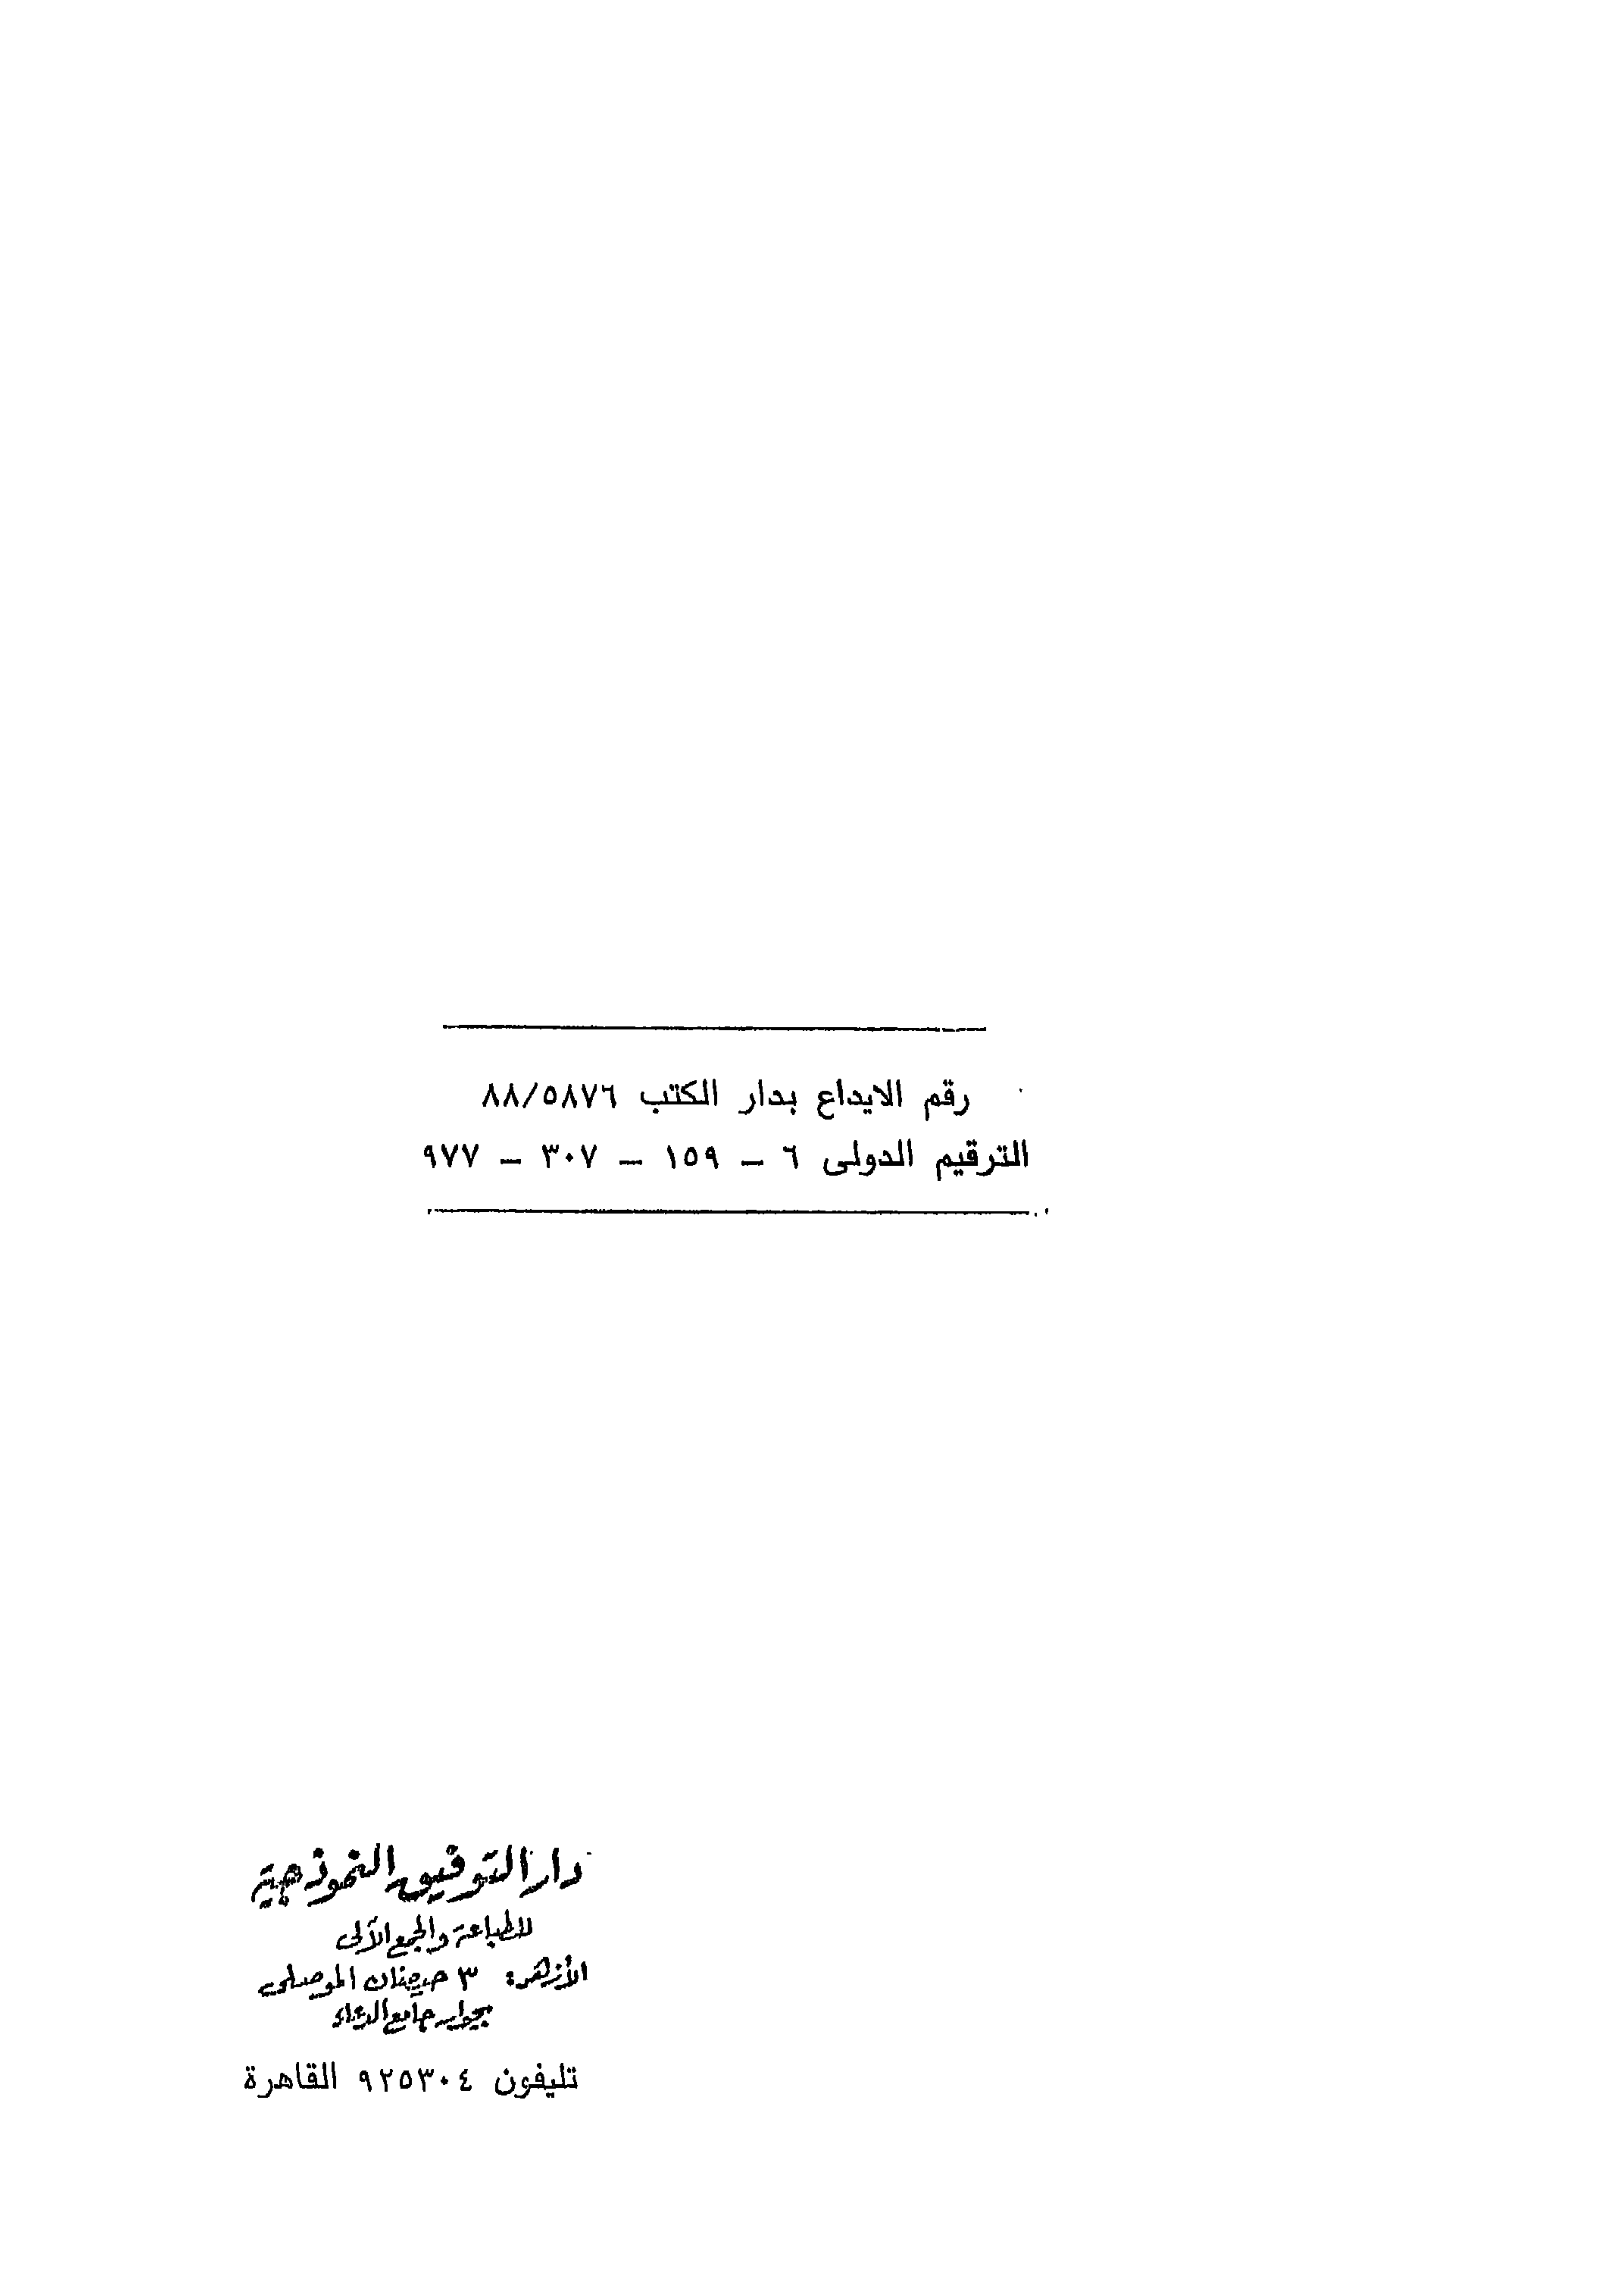 رقم الايداع بدار الكتب ٨٨/٥٨٧٦
الترقيم الدولى ٦ – ١٥٩ – ٣٠٧ – ٩٧٧
دار التوفيق النموذجية
للطباعة والجمع الآلى
الأزهر: ٣ حيضان الموصلى
بجوار جامع الدعاء
تليفون ٩٢٥٣٠٤ القاهرة